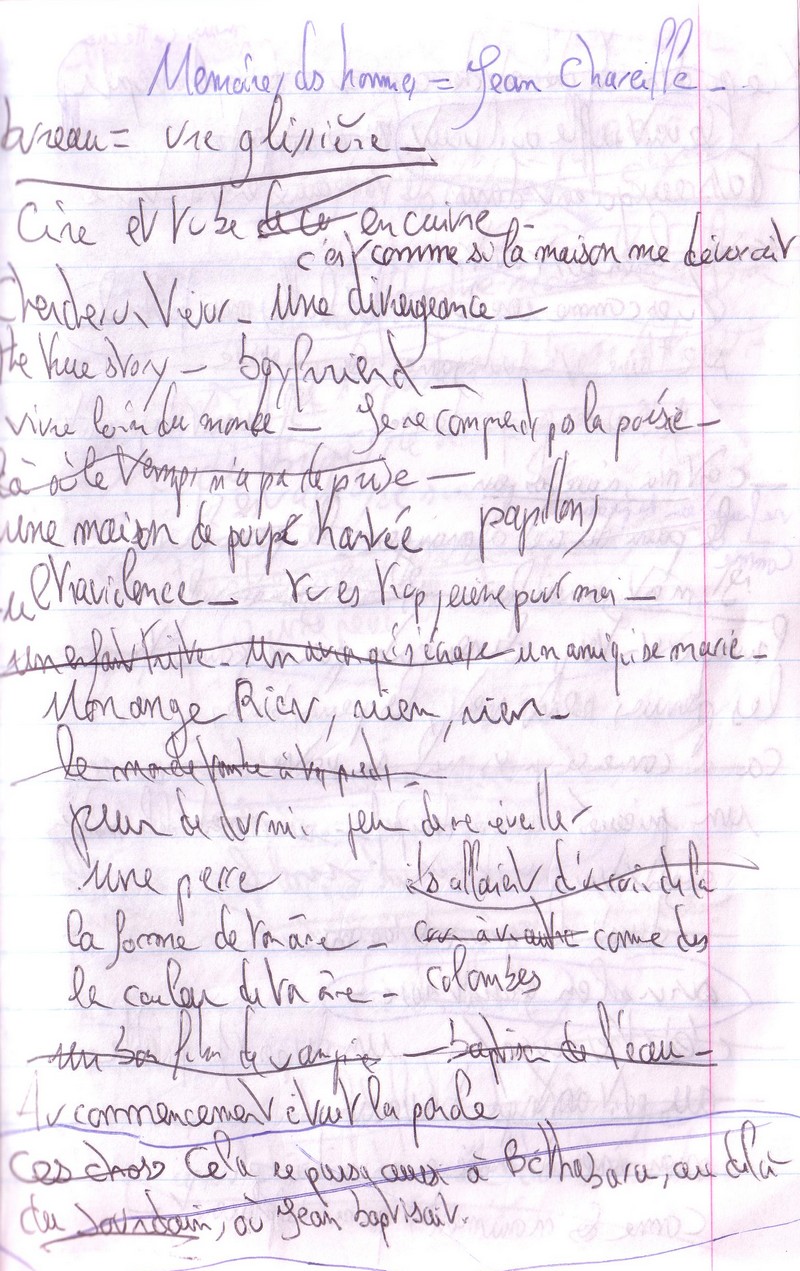 Memoires des hommes = Jean Chareille -
bureau = une glissière -
Cire et tube en cuivre -
c'est comme si la maison me dévorait
Une divergeance -
the true story - boyfriend -
vivre loin du monde - Je ne comprend pas la poésie -
là où le temps n'a pas de prise -
une maison de poupé hantée papillons
ultraviolence - tu es trop jeune pour moi -
un enfant triste - un ami qui se marie -
Mon ange Rien, rien, rien -
le monde tombe à tes pieds -
peur de dormir peur de me réveiller
Une pierre ils allaient
la forme de ton âme - comme des
la couleur de ton âme - colombes
un bon film de vampire - baptiser de l'eau -
Au commencement était la parole
Ces choses Cela se passa aussi à Béthabara, au delà
du Jourdain, où Jean baptisait.